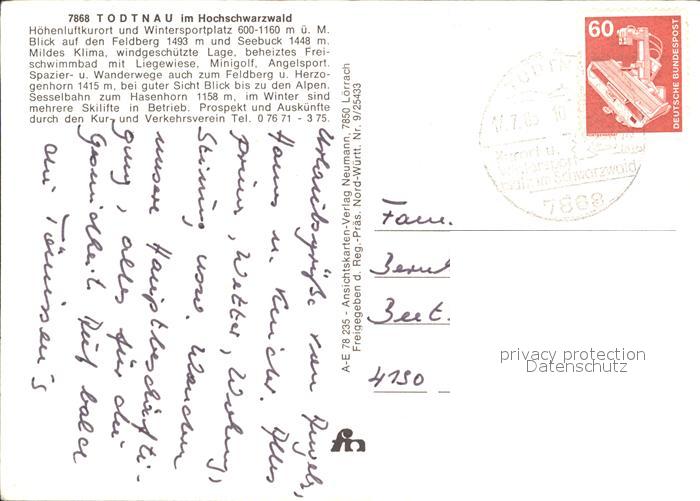 7868 TODTNAU im Hochschwarzwald
Höhenluftkurort und Wintersportplatz 600-1160 m ü. M.
Blick auf den Feldberg 1493 m und Seebuck 1448 m.
Mildes Klima, windgeschützte Lage, beheiztes Frei-
schwimmbad mit Liegewiese, Minigolf, Angelsport.
Spazier- u. Wanderwege auch zum Feldberg u. Herzo-
genhorn 1415 m, bei guter Sicht Blick bis zu den Alpen.
Sesselbahn zum Hasenhorn 1158 m, im Winter sind
mehrere Skilifte in Betrieb. Prospekt und Auskünfte
durch den Kur- und Verkehrsverein Tel. 0 76 71 - 3 75.
Urlaubsgrüße von
Hanns u. Alles
prima, Wetter, Wohnung,
Stimmg. usw. Wandern
unsere Hauptbeschäfti-
gung, alles für die
Gesundheit. Auf bald
die Tönissen's
A-E 78 235 - Ansichtskarten-Verlag Neumann, 7850 Lörrach
Freigegeben d. Reg.-Präs. Nord-Württ. Nr. 9/25433
60
DEUTSCHE BUNDESPOST
Schwarzwald
7868
Fam.
Bernd
4190
privacy protection
Datenschutz
fm